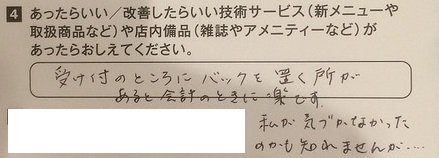 4 あったらいい／改善したらいい技術サービス（新メニューや
取扱商品など）や店内備品（雑誌やアメニティーなど）が
あったらおしえてください。
受け付のところに バックを 置く所が
あると会計のときに楽です。
私が気づかなかった
のかも知れませんが….